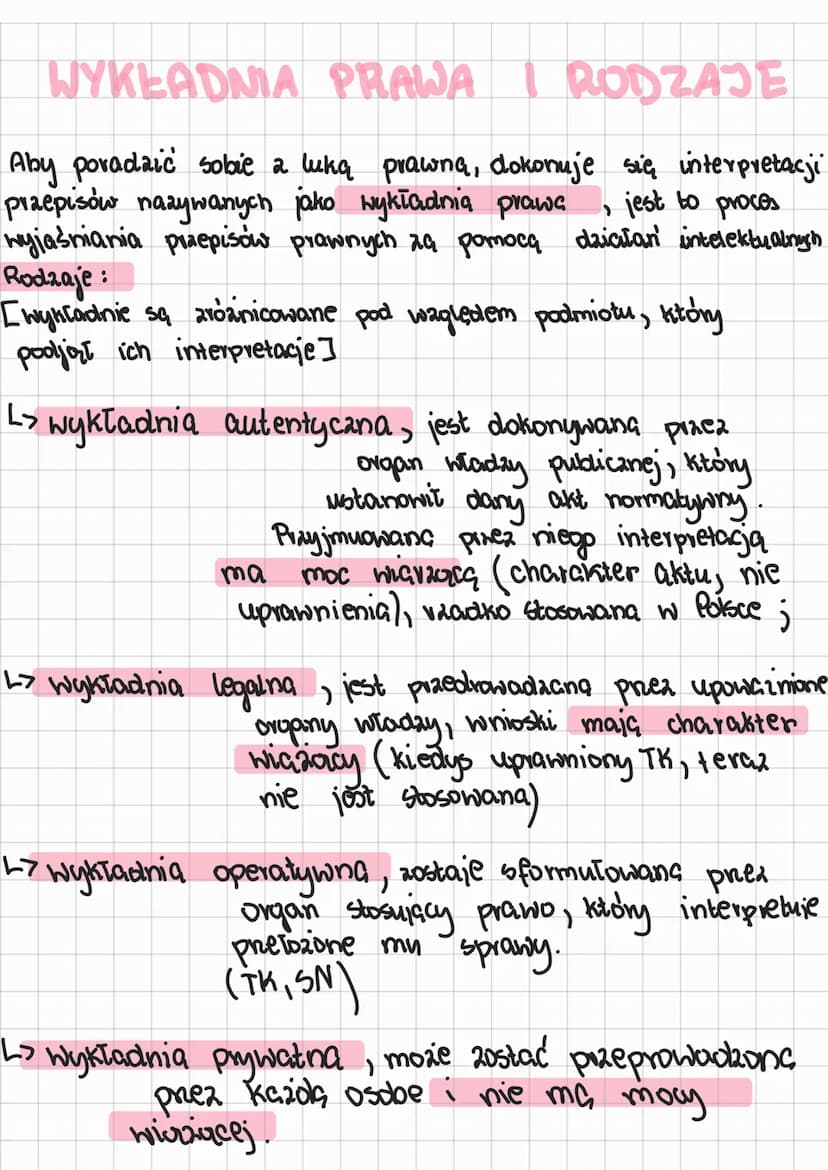 WYKŁADNIA PRAWA I RODZAJE
Aby poradzić sobie z luką prawną, dokonuje się interpretacji
przepisów nazywanych jako wykładnią prawa, jest to proces
wyjaśniania przepisów prawnych za pomocą działań intelektualnych
Rodzaje:
[wykładnie są zróżnicowane pod względem podmiotu, który
podjął ich interpretacje]
↳ wykładnia autentyczna, jest dokonywana przez
organ władzy publicznej, który
ustanowił dany akt normatywny.
Przyjmuowana przez niego interpretacją
ma moc wiążącą (charakter aktu, nie
uprawnienia), rzadko stosowana w Polsce;
↳ wykładnia legalna, jest przedrowadzaną przez upoważnione
organy władzy, wnioski mają charakter
wiążący (kiedyś uprawniony TK, teraz
nie jest stosowana)
↳ wykładnia operatywna, zostaje sformułowana przez
organ stosujący prawo, który interpretuje
przełożone mu sprawy.
(TK, SN)
↳ wykładnia prywatna, może zostać przeprowadzona
przez każdą osobe i nie ma mocy
wiążącej.